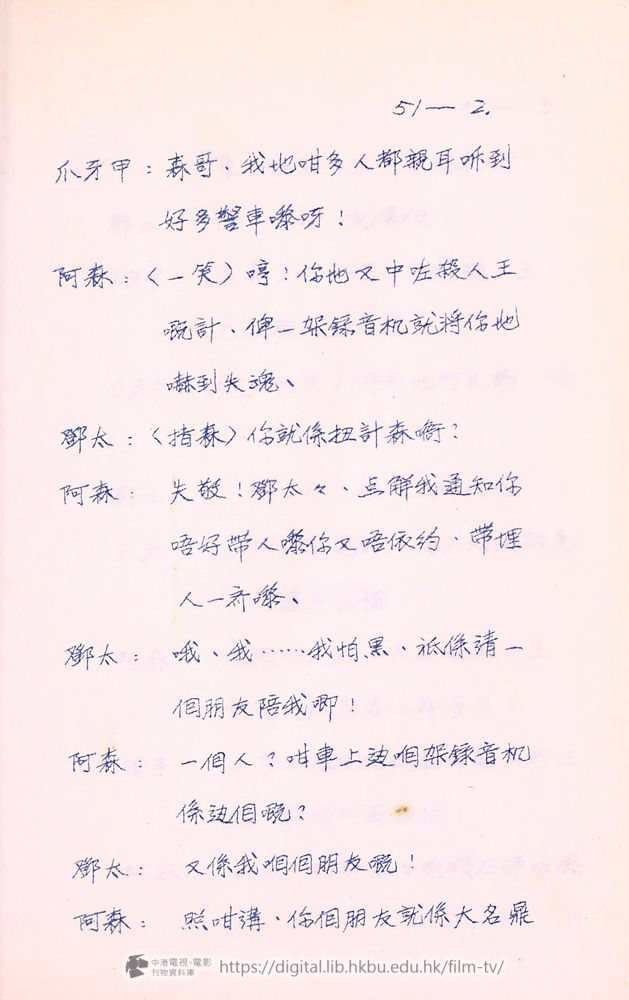 51—2.
爪牙甲：森哥、我地咁多人都親耳听到
好多警車嚟呀！
阿森：（一笑）哼！你地又中咗殺人王
嘅計、俾一架錄音机就將你地
嚇到失魂、
鄧太：（指森）你就係扭計森嗬？
阿森：失敬！鄧太々、点解我通知你
唔好帶人嚟你又唔依約、帶埋
人一齐嚟、
鄧太：哦、我……我怕黑、祗係請一
個朋友陪我唧！
阿森：一個人？咁車上边嗰架錄音机
係边個嘅？
鄧太：又係我嗰個朋友嘅！
阿森：照咁講、你個朋友就係大名鼎
中港電視·電影
刊物資料庫
https://digital.lib.hkbu.edu.hk/film-tv/